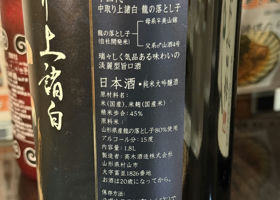 中取り上諸白 龍の落とし子
龍の落とし子
(自社開発米)
母系 美山錦
父系 山酒4号
瑞々しく気品ある味わいの
淡麗型旨口酒
日本酒・純米大吟醸酒
原材料名:
米(国産)、米麹(国産米)
精米歩合:45%
原料米:
山形県産龍の落とし子80%使用
アルコール分:15度
内容量:1.8L
製造者:高木酒造株式会社
山形県村山市
大字富並1826番地
お酒は20歳になってから。
保存方法:
上諸白